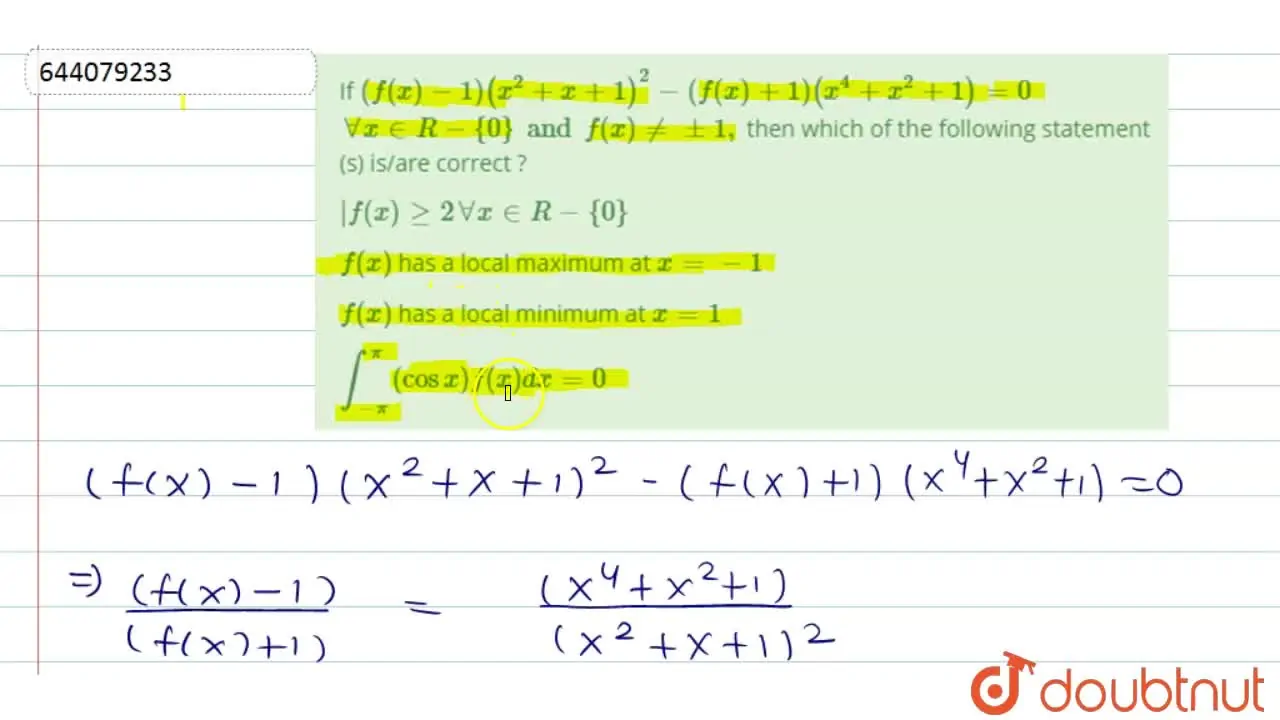 644079233
If (f(x) − 1)(x² + x + 1)² − (f(x) + 1)(x⁴ + x² + 1) = 0
∀x ∈ R − {0} and f(x) ≠ ±1, then which of the following statement
(s) is/are correct ?
|f(x) ≥ 2∀x ∈ R − {0}
f(x) has a local maximum at x = − 1
f(x) has a local minimum at x = 1
∫_{−π}^{π} (cos x) f(x)dx = 0
(f(x) − 1) (x² + x + 1)² − (f(x) + 1) (x⁴ + x² + 1) = 0
⇒ (f(x) − 1) / (f(x) + 1) = (x⁴ + x² + 1) / (x² + x + 1)²
doubtnut